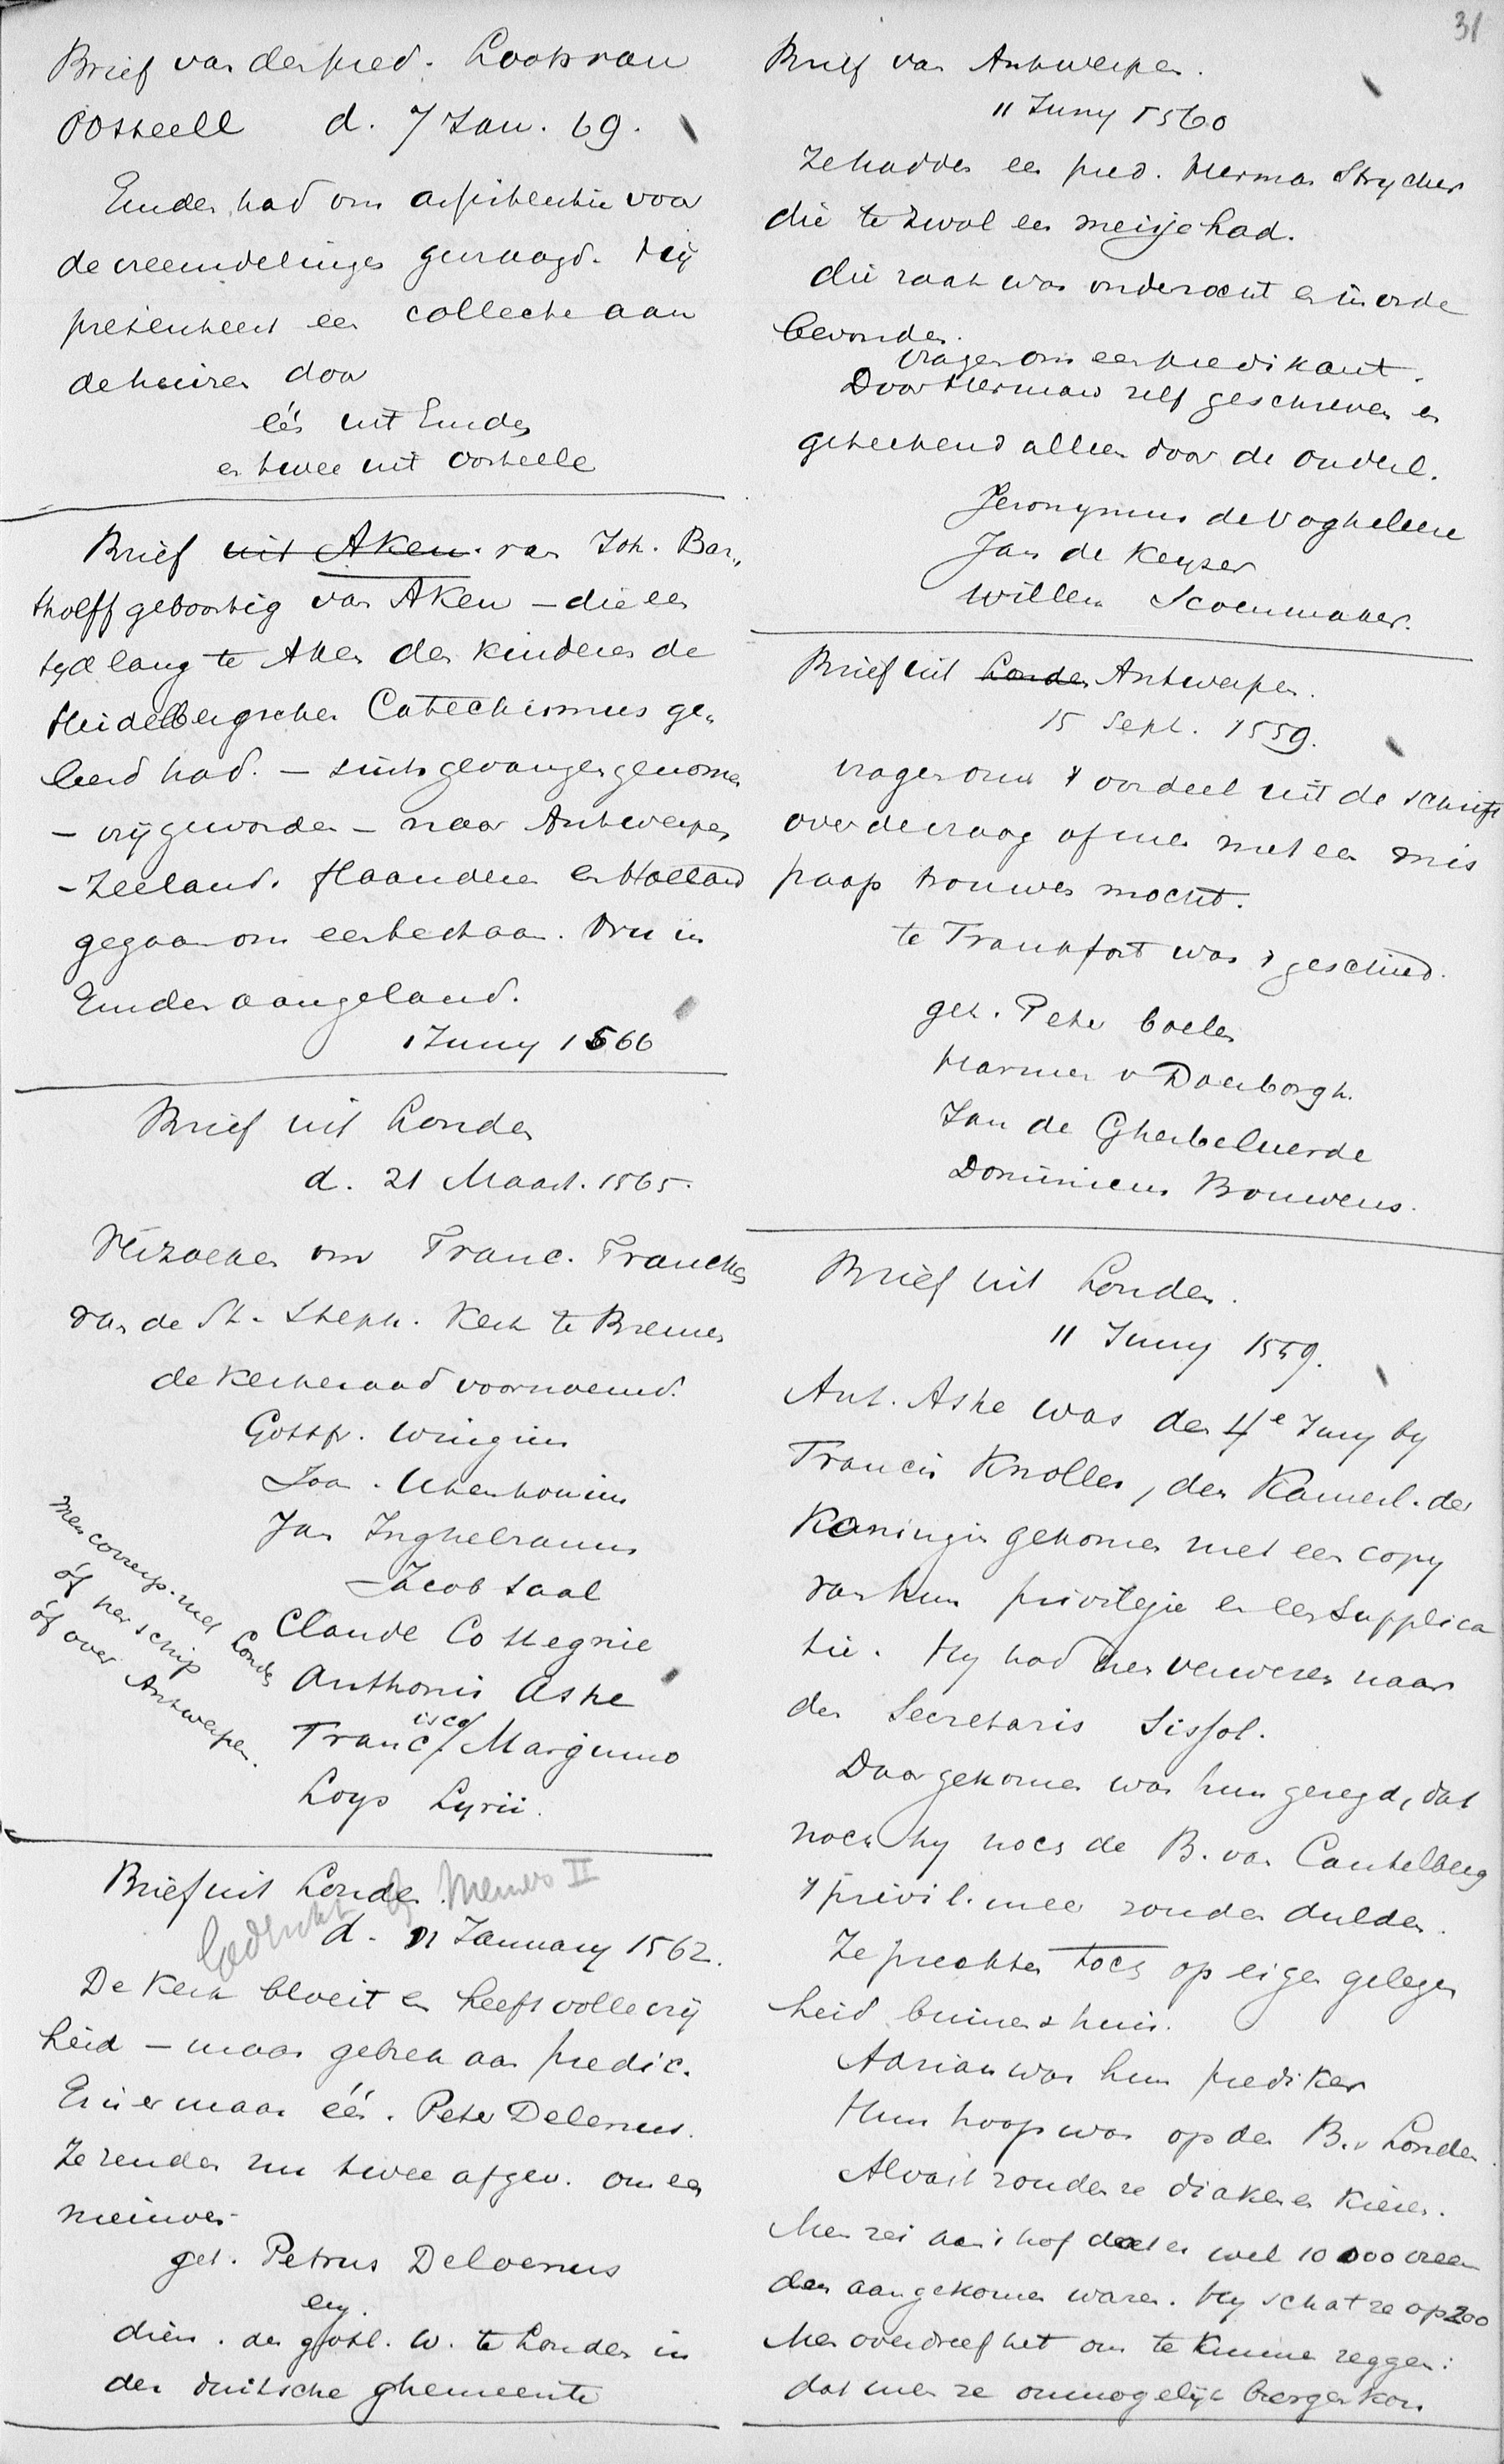 31
Brief van den pred. Loots van
Osteell d. 7 Jan. 69.
Emden had om assistentie voor
de vreemdelingen gevraagd. Hij
presenteert een collecte aan
de huizen door
één uit Emden
en twee uit Oosteele
Brief uit Aken. van Joh. Bar„
tholff geboortig van Aken – die een
tyd lang te Aken den kinderen de
Heidelbergschen Catechismus ge„
leerd had. – sints gevangen genomen
– vrij geworden – naar Antwerpen
– Zeeland. Flaanderen en Holland
gegaan om een bestaan. Dru in
Emden aangeland.
1 Juny 1566
Brief uit Londen
d. 21 Maart. 1565.
Verzoeken om Franc. Francken
van de St. Steph. Kerk te Bremen
de Kerkeraad voornoemd.
Gottfr. Wingius
Joan. Utenhovius
Jan Inghelramus
Jacob Saal
Claude Cottegnie
Anthonis Ashe
Francisco Margumo
Loys Lyrii.
Men corresp. met Londen
óf per schip
óf over Antwerpen.
Brief uit Londen.
Gedrukt by Meiners II
d. 21 January 1562.
De Kerk bloeit en heeft volle vrij
heid – maar gebrek aan predic.
Er is er maar één. Peter Delenus.
Ze zenden nu twee afgev. om een
nieuwen
get. Petrus Deloenus
dien. des godl. W. te Londen in
der duitsche ghemeente
Brief van Antwerpen.
11 Juny 1560
Ze hadden een pred. Herman Strycker
die te Zwol een meisje had.
die zaak was onderzocht en in orde
bevonden.
vragen om een predikant.
Door Herman zelf geschreven en
geteekend alleen door de ouderl.
Jeronymus de Vogheleere
Jan de Keyser
Willem Scoenmaker.
Brief uit Londen Antwerpen.
15 Sept. 1559.
vragen om 't oordeel uit de schrift
over de vraag of men met een mis
paap trouwen mocht.
te Frankfort was 't geschied.
get. Peter Coelen
Harmen v Doerborgh.
Jan de Gherbeluerde
Dominicus Bouwens.
Brief uit Londen.
11 Juny 1559.
Ant. Ashe was den 4e Juny by
Francis Knolles, den Kamerl. der
Koningin gekomen met een copy
van hun privilegie en een Supplica
tie. Hy had hen verwezen naar
den Secretaris Sissol.
Daar gekomen was hun gezegd, dat
noch hy noch de B. van Cantelberg
't privil. meer zouden dulden.
Ze preekten toch op eigen gelegen
heid binnens huis.
Adrian was hun prediker
Hun hoop was op den B. v Londen.
Alvast zouden ze diakenen kiezen.
Men zei aan 't hof dat er wel 10 000 vreem
den aangekomen waren. Hy schat ze op 200
Men overdreef het om te kunnen zeggen:
dat men ze onmogelijk bergen kon